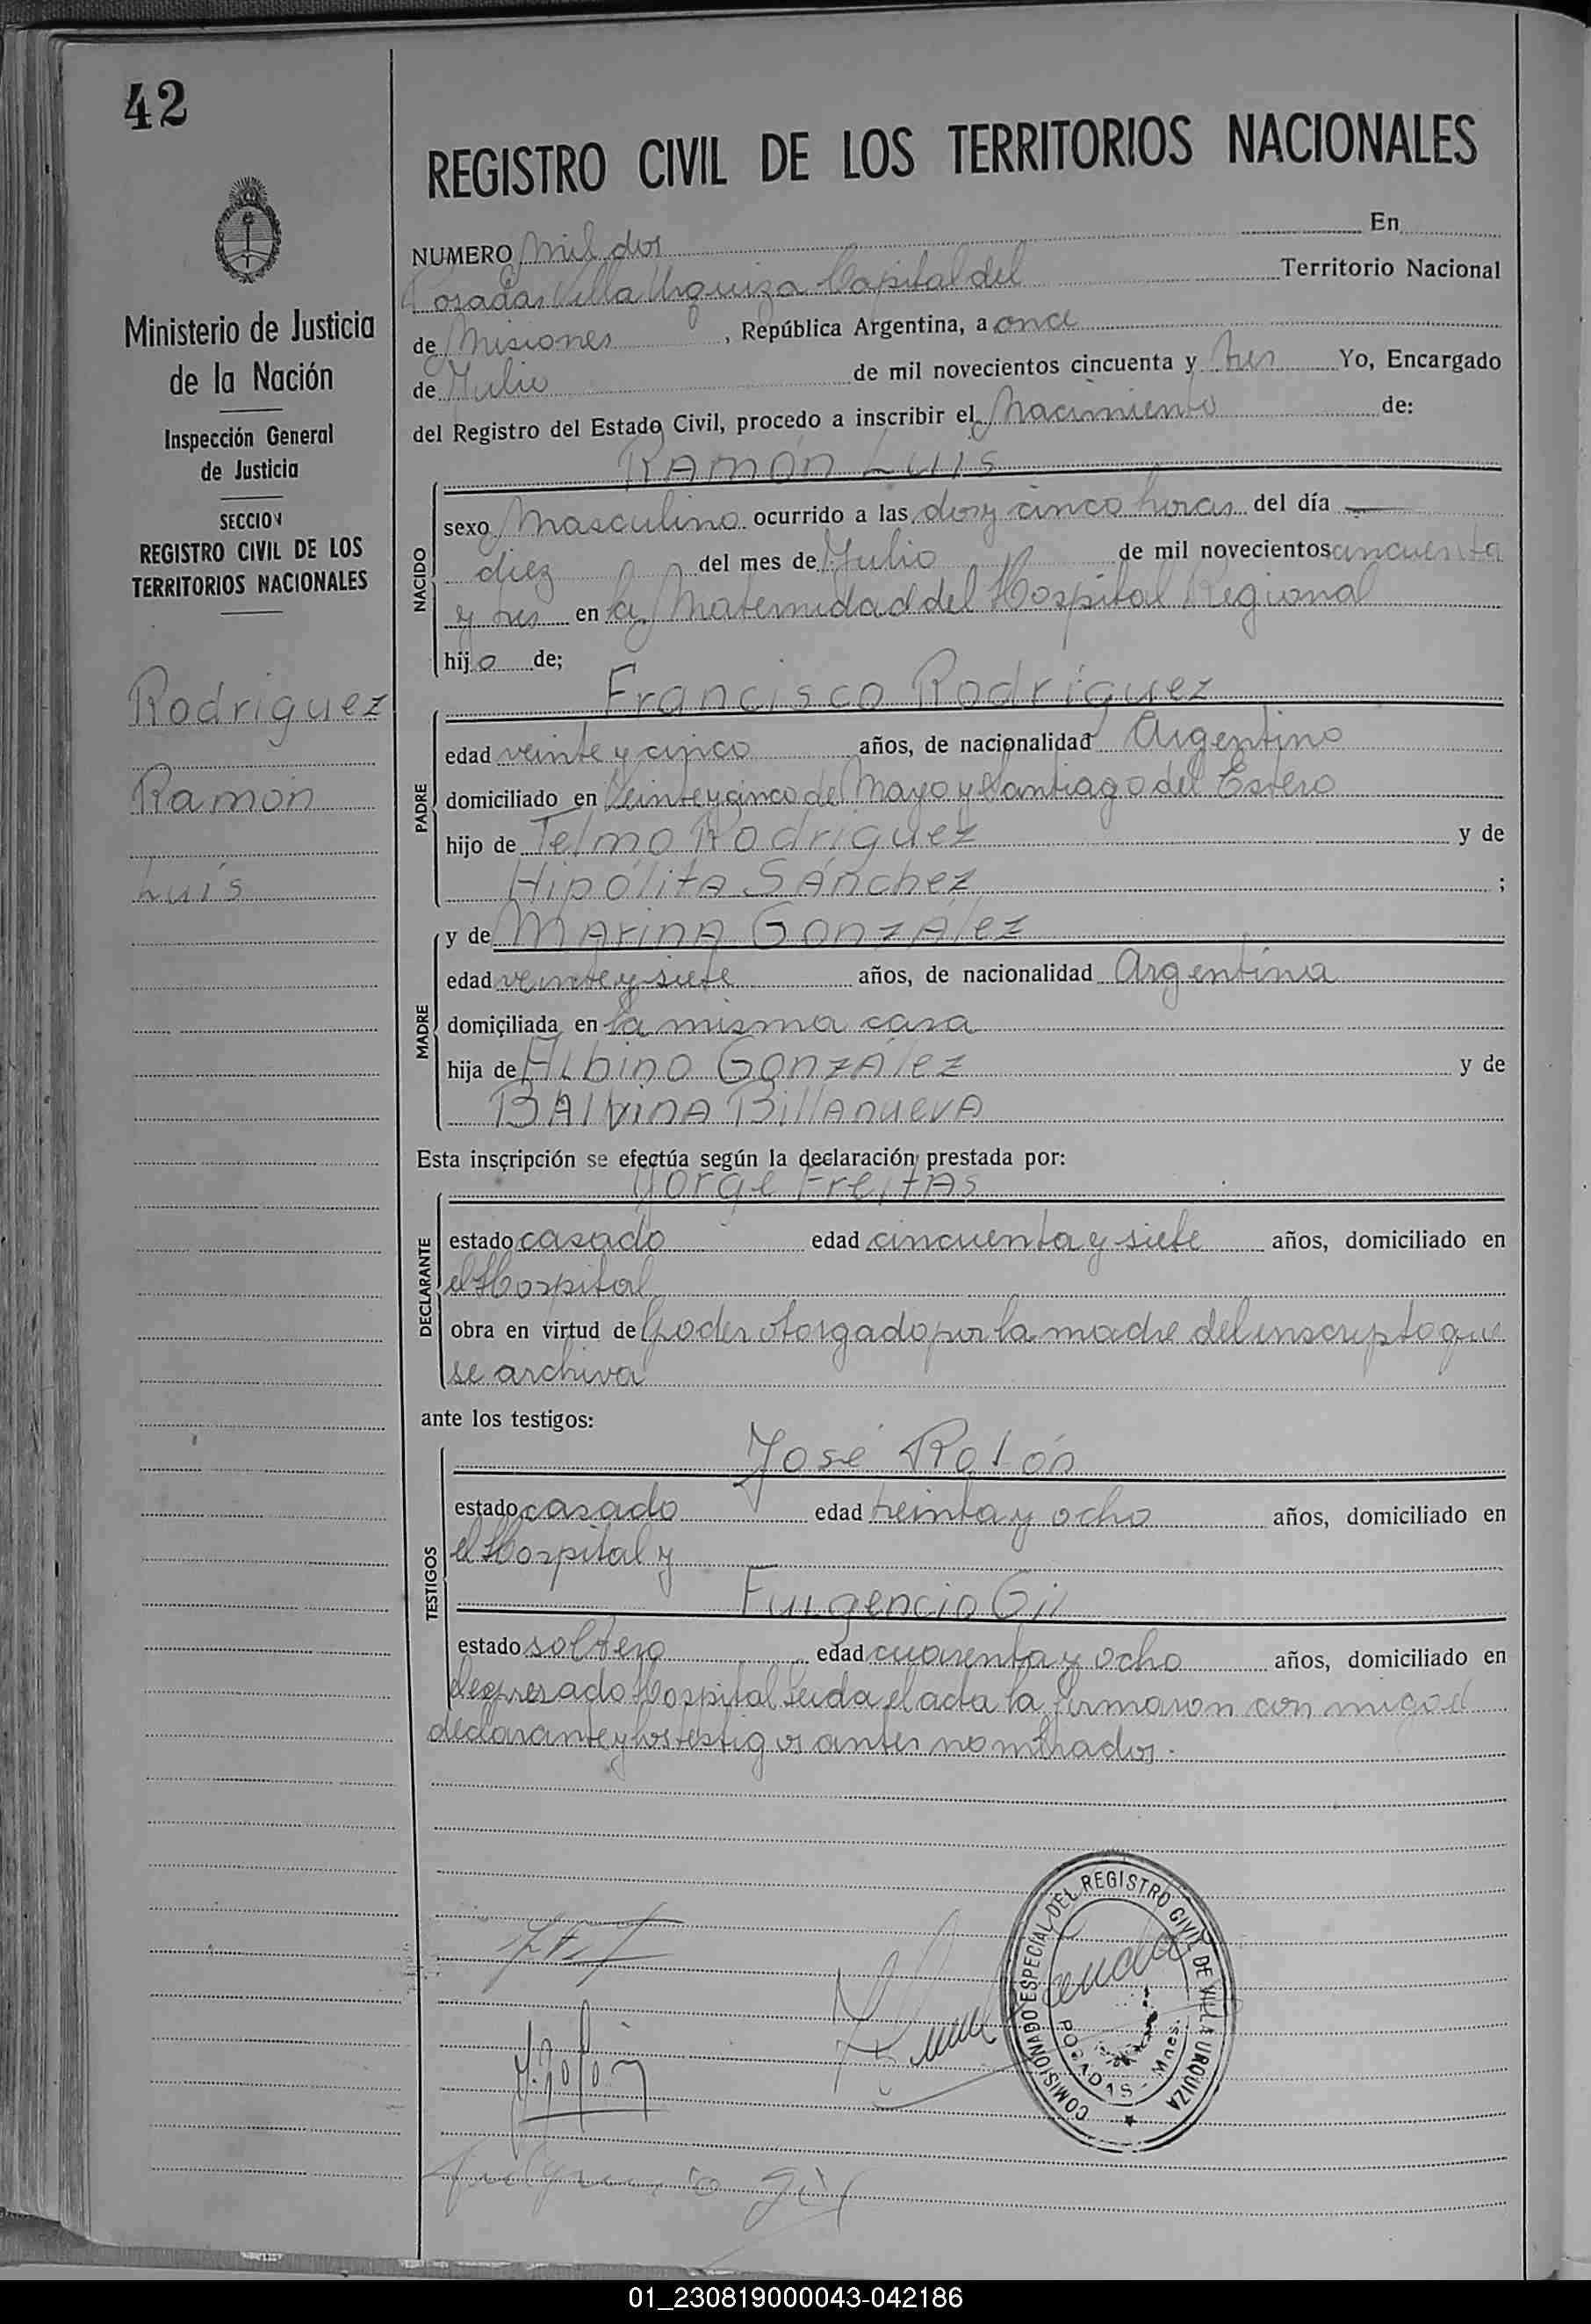 42
REGISTRO CIVIL DE LOS TERRITORIOS NACIONALES
Ministerio de Justicia
de la Nación
Inspección General
de Justicia
SECCION
REGISTRO CIVIL DE LOS
TERRITORIOS NACIONALES
Rodriguez
Ramón
Luis
NUMERO Mil dos En
Posadas Villa Urquiza Capital del Territorio Nacional
de Misiones, República Argentina, a once
de Julio de mil novecientos cincuenta y tres Yo, Encargado
del Registro del Estado Civil, procedo a inscribir el Nacimiento de:
RAMÓN LUIS
NACIDO
sexo Masculino ocurrido a las dos y cinco horas del día
diez del mes de Julio de mil novecientos cincuenta
y tres en la Maternidad del Hospital Regional
hijo de;
Francisco Rodriguez
PADRE
edad veinte y cinco años, de nacionalidad Argentino
domiciliado en Veinte y cinco de Mayo y Santiago del Estero
hijo de Telmo Rodriguez y de
Hipólita Sánchez ;
MADRE
y de Marina González
edad veinte y siete años, de nacionalidad Argentina
domiciliada en la misma casa
hija de Albino González y de
Balvina Billanueva
Esta inscripción se efectúa según la declaración prestada por:
Jorge Freitas
DECLARANTE
estado casado edad cincuenta y siete años, domiciliado en
el Hospital
obra en virtud de Poder otorgado por la madre del inscripto que
se archiva
ante los testigos:
José Rolón
TESTIGOS
estado casado edad treinta y ocho años, domiciliado en
el Hospital y
Fulgencio Gil
estado soltero edad cuarenta y ocho años, domiciliado en
Hospital Leida el acta la firmaron con migo el
declarante y los testigos antes nombrados.
J. Rolón
COMISIONADO ESPECIAL DEL REGISTRO CIVIL DE VILLA URQUIZA
POSADAS - Mnes.
Fulgencio Gil
01_230819000043-042186